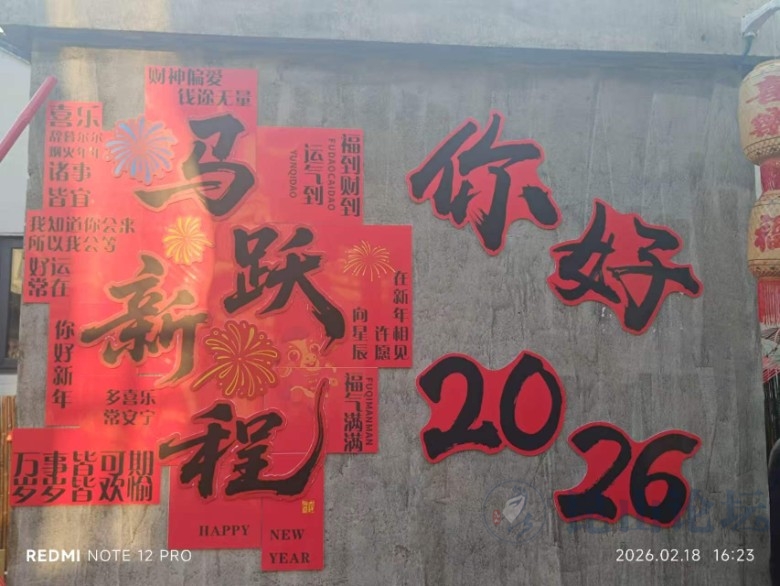 财神偏爱
钱途无量
喜乐
辞暮尔尔
烟火年年
诸事
皆宜
福到财到
FUDAOCAIDAO
运气到
YUNQIDAO
马
跃
新
程
我知道你会来
所以我会等
好运
常在
在新年相见
向星辰
许愿
你好新年
多喜乐
常安宁
福气满满
FUQIMANMAN
万事皆可期
岁岁皆欢愉
HAPPY
NEW
YEAR
你
好
20
26
REDMI NOTE 12 PRO
2026.02.18 16:23